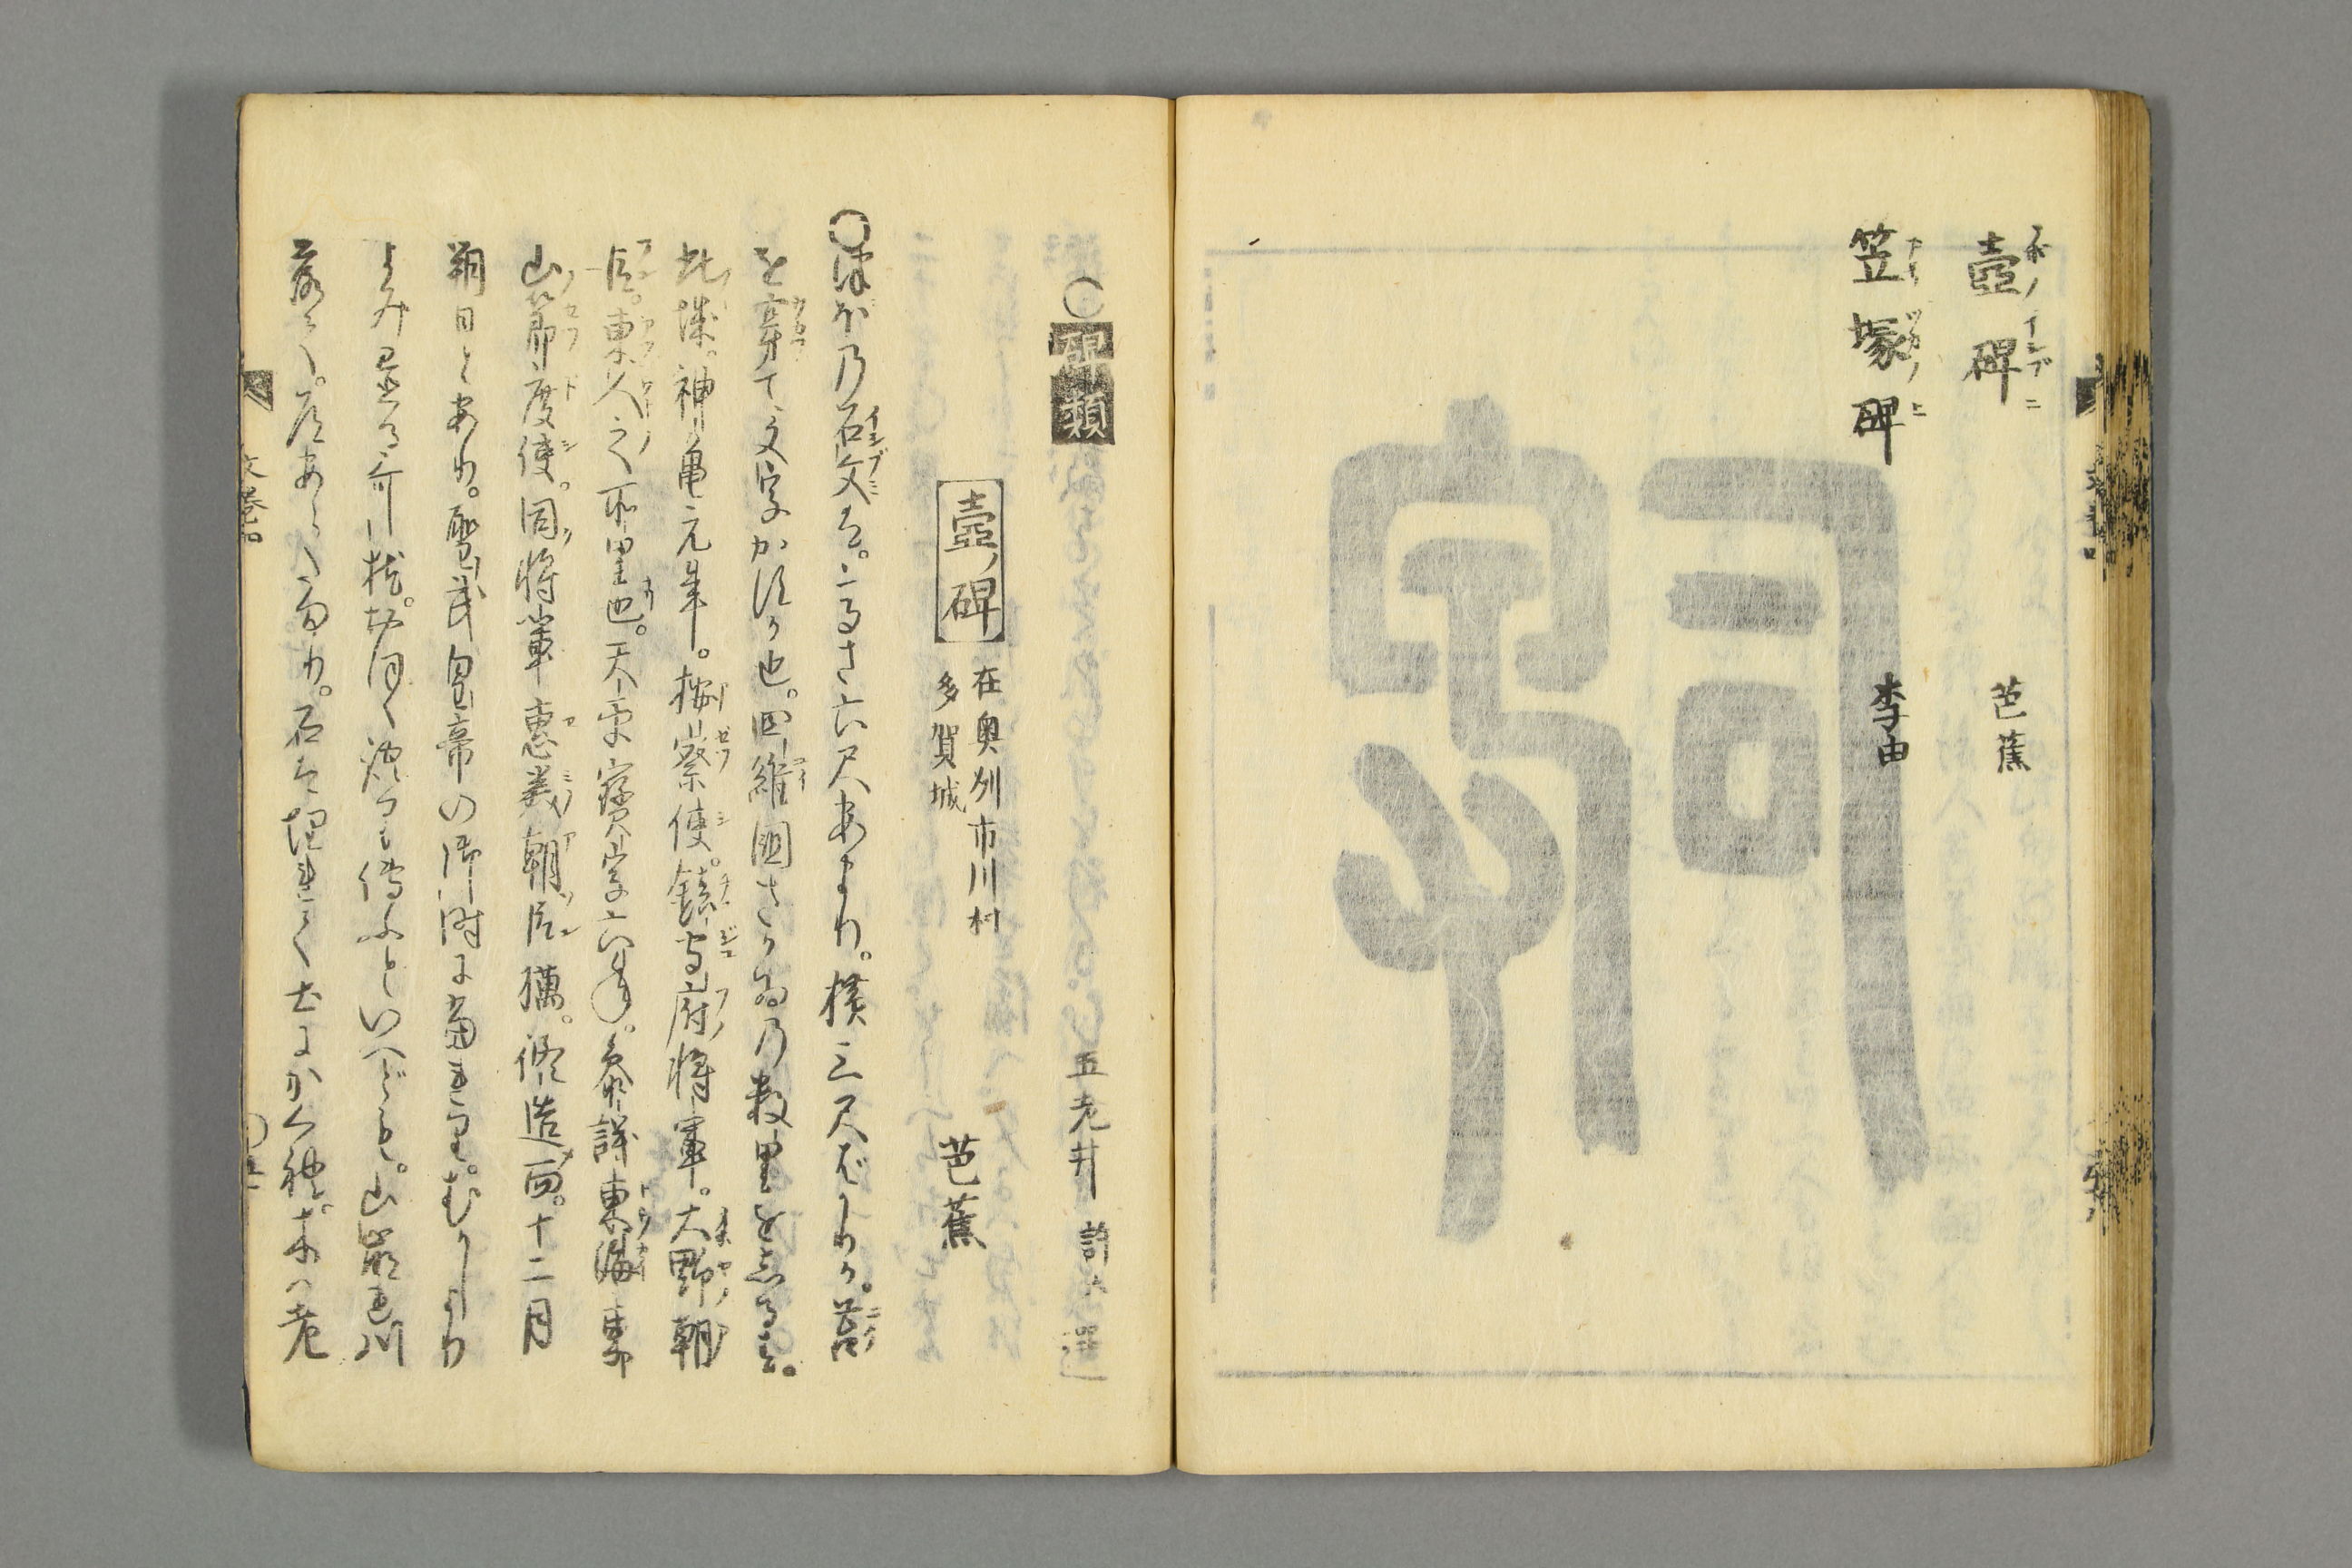 壺碑 芭蕉
笠塚碑 李由
○碑類 五老井 許六 選
壺ノ碑 在奥州市川村
多賀城 芭蕉
○つぼ乃石文ハ。高さ六尺あまり。横三尺ばかりか。苔
を穿て文字かすか也。四維国さかゐ乃数里を志るす。
此城。神亀元年。按察使。鎮守府将軍。大野朝
臣。東人之所里也。天平宝字六年。参議東海東
山節度使。同将軍恵美朝臣獦。修造而。十二月
朔日とあり。聖武皇帝の御時に当れり。むかしより
よみ置る哥枕。おほく語り伝ふといへども。山崩れ川
落て。道あらたまり。石は埋れて土にかくれ。木ハ老